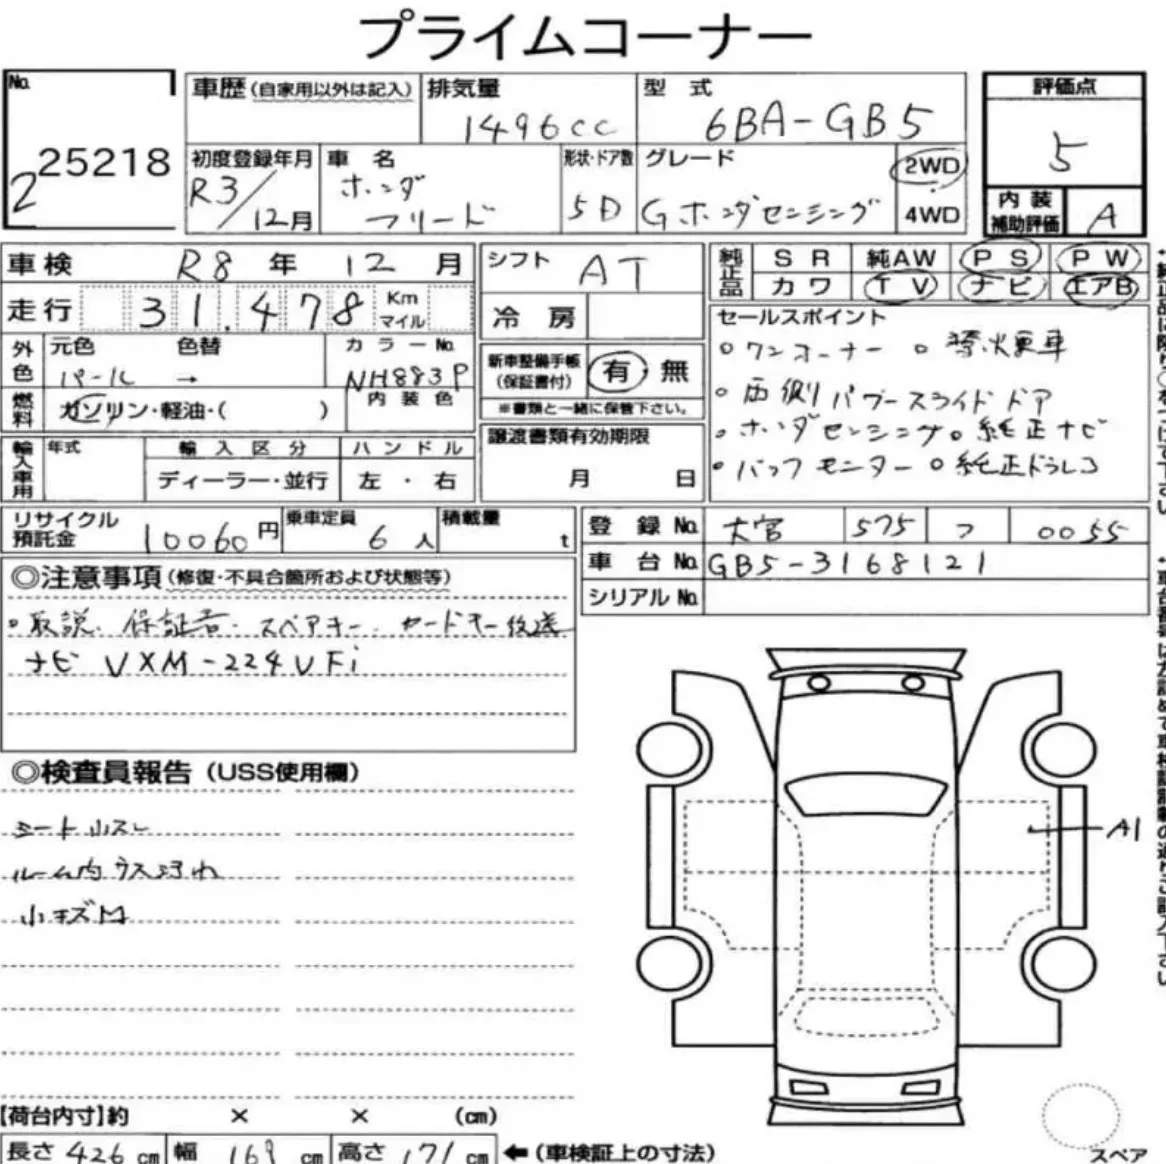 プライムコーナー
No. 25218
2
車歴(自家用以外は記入)
排気量 1496cc
型式 6BA-GB5
評価点 5
初度登録年月 R3/12月
車名 ホンダ フリード
形状・ドア数 5D
グレード Gホンダセンシング
2WD
4WD
内装補助評価 A
車検 R8年12月
走行 31.478 Km マイル
シフト AT
冷房
純正品 SR 純AW PS PW
カワ TV ナビ エアB
外色 元色 パール → 色替
カラーNo. NH883P
内装色
燃料 ガソリン・軽油・( )
新車整備手帳(保証書付) 有・無
※書類と一緒に保管下さい。
セールスポイント
○ワンオーナー ○禁火更車
○両側パワースライドドア
○ホンダセンシング ○純正ナビ
○バックモニター ○純正ドラレコ
輸入車用 年式 輸入区分 ハンドル
ディーラー・並行 左・右
譲渡書類有効期限
月 日
リサイクル預託金 10060円
乗車定員 6人
積載量 t
登録No. 大宮 575 フ 0055
車台No. GB5-3168121
シリアルNo.
◎注意事項(修復・不具合箇所および状態等)
○取説、保証書、スペアキー、カードキー後送
ナビ VXM-224VFi
◎検査員報告(USS使用欄)
シート小スレ
ルーム内ウス汚れ
小キズM
A1
【荷台内寸】約 × × (cm)
長さ 426cm 幅 169cm 高さ 171cm ←(車検証上の寸法)
スペア